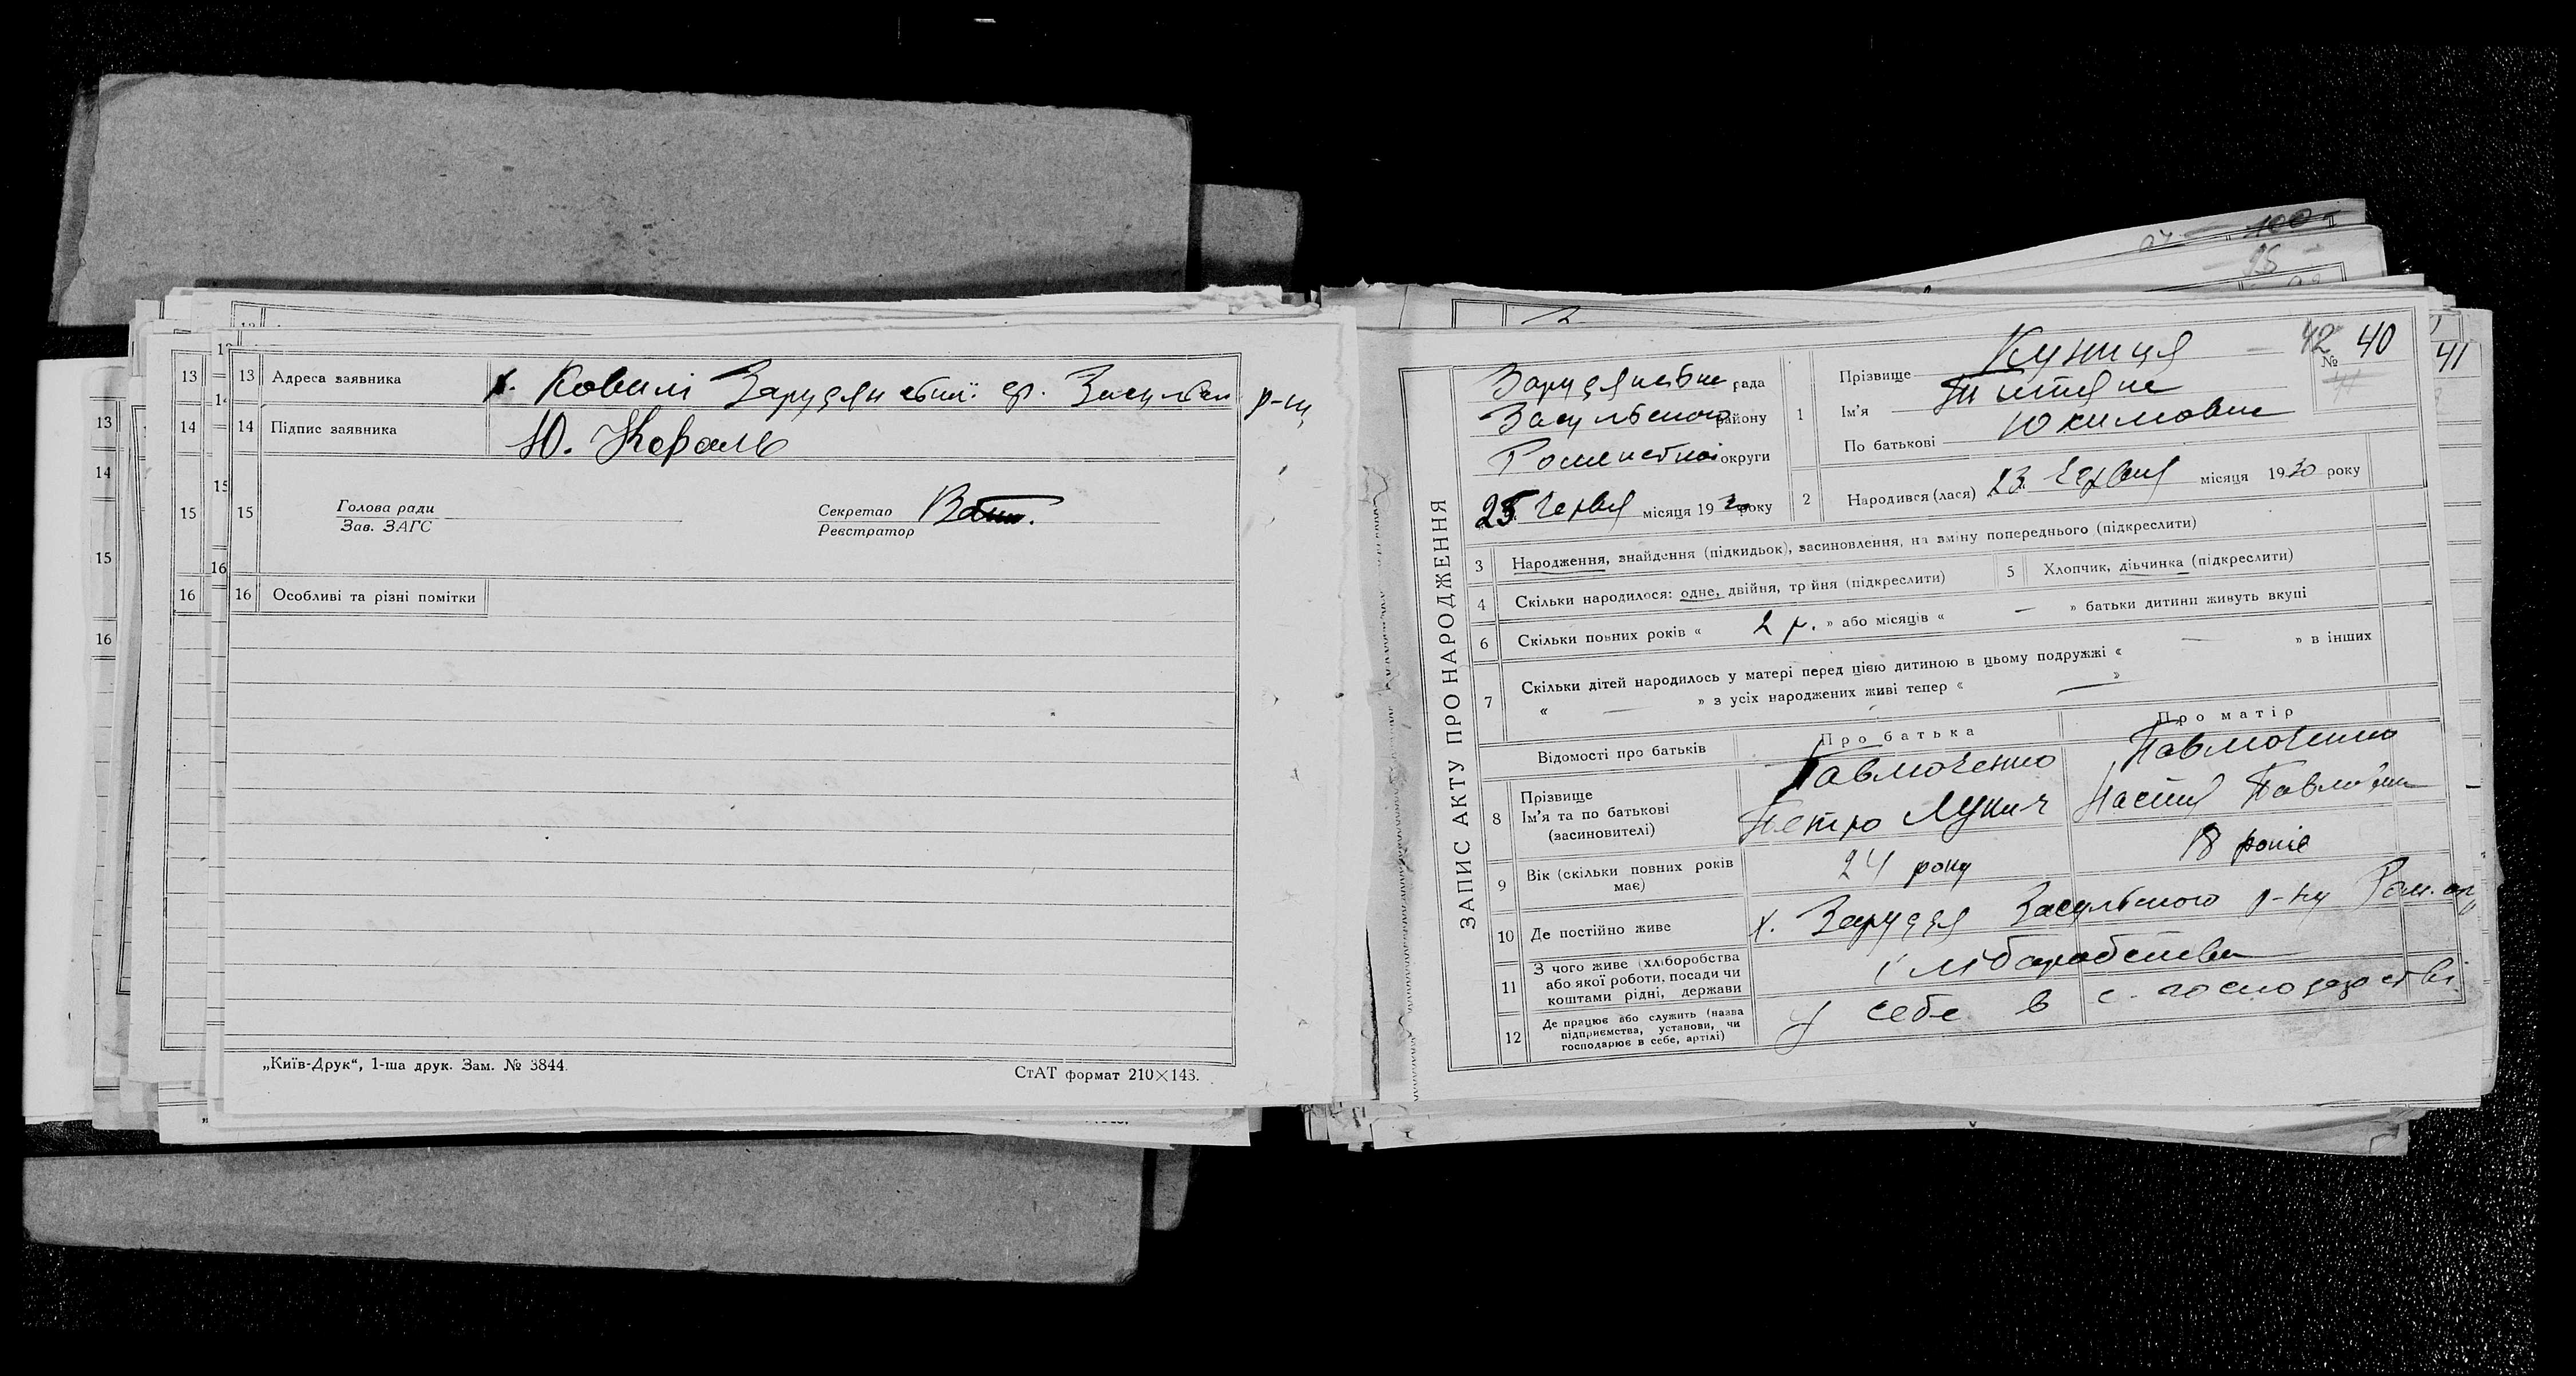 13 Адреса заявника х. Ковалі Заруднянської ср. Засульськ р-ну
14 Підпис заявника Ю. Король
15 Голова ради Зав. ЗАГС Секретар Реєстратор
16 Особливі та різні помітки
„Київ-Друк“, 1-ша друк. Зам. № 3844.
СтАТ формат 210×143.
13
14
15
16
13
14
15
16
15
16
100
95
41
ЗАПИС АКТУ ПРО НАРОДЖЕННЯ
рада
Засульського району
Роменської округи
25 Червня місяця 1930 року
42 № 40
1 Прізвище Куниця
Ім’я Титяна
По батькові Юхимовна
2 Народився (лася) 23 червня місяця 1930 року
3 Народження, знайдення (підкидьок), засиновлення, на зміну попереднього (підкреслити)
4 Скільки народилося: одне, двійня, трійня (підкреслити)
5 Хлопчик, дівчинка (підкреслити)
6 Скільки повних років « 2 р. » або місяців « — » батьки дитини живуть вкупі
7 Скільки дітей народилось у матері перед цією дитиною в цьому подружжі « — » в інших
« — » з усіх народжених живі тепер « — »
Відомості про батьків Про батька Про матір
8 Прізвище Ім’я та по батькові (засновителі)
Павлюченко Петро Лукич
Павлюченко Настя
9 Вік (скільки повних років має) 24 року 18 років
10 Де постійно живе х. Заруддя Засульського р-ну Ром. окр
11 З чого живе (хліборобства або якої роботи, посади чи коштами рідні, держави хліборобства
12 Де працює або служить (назва підприємства, установи, чи господарює в себе, артілі) у себе в с. господарстві